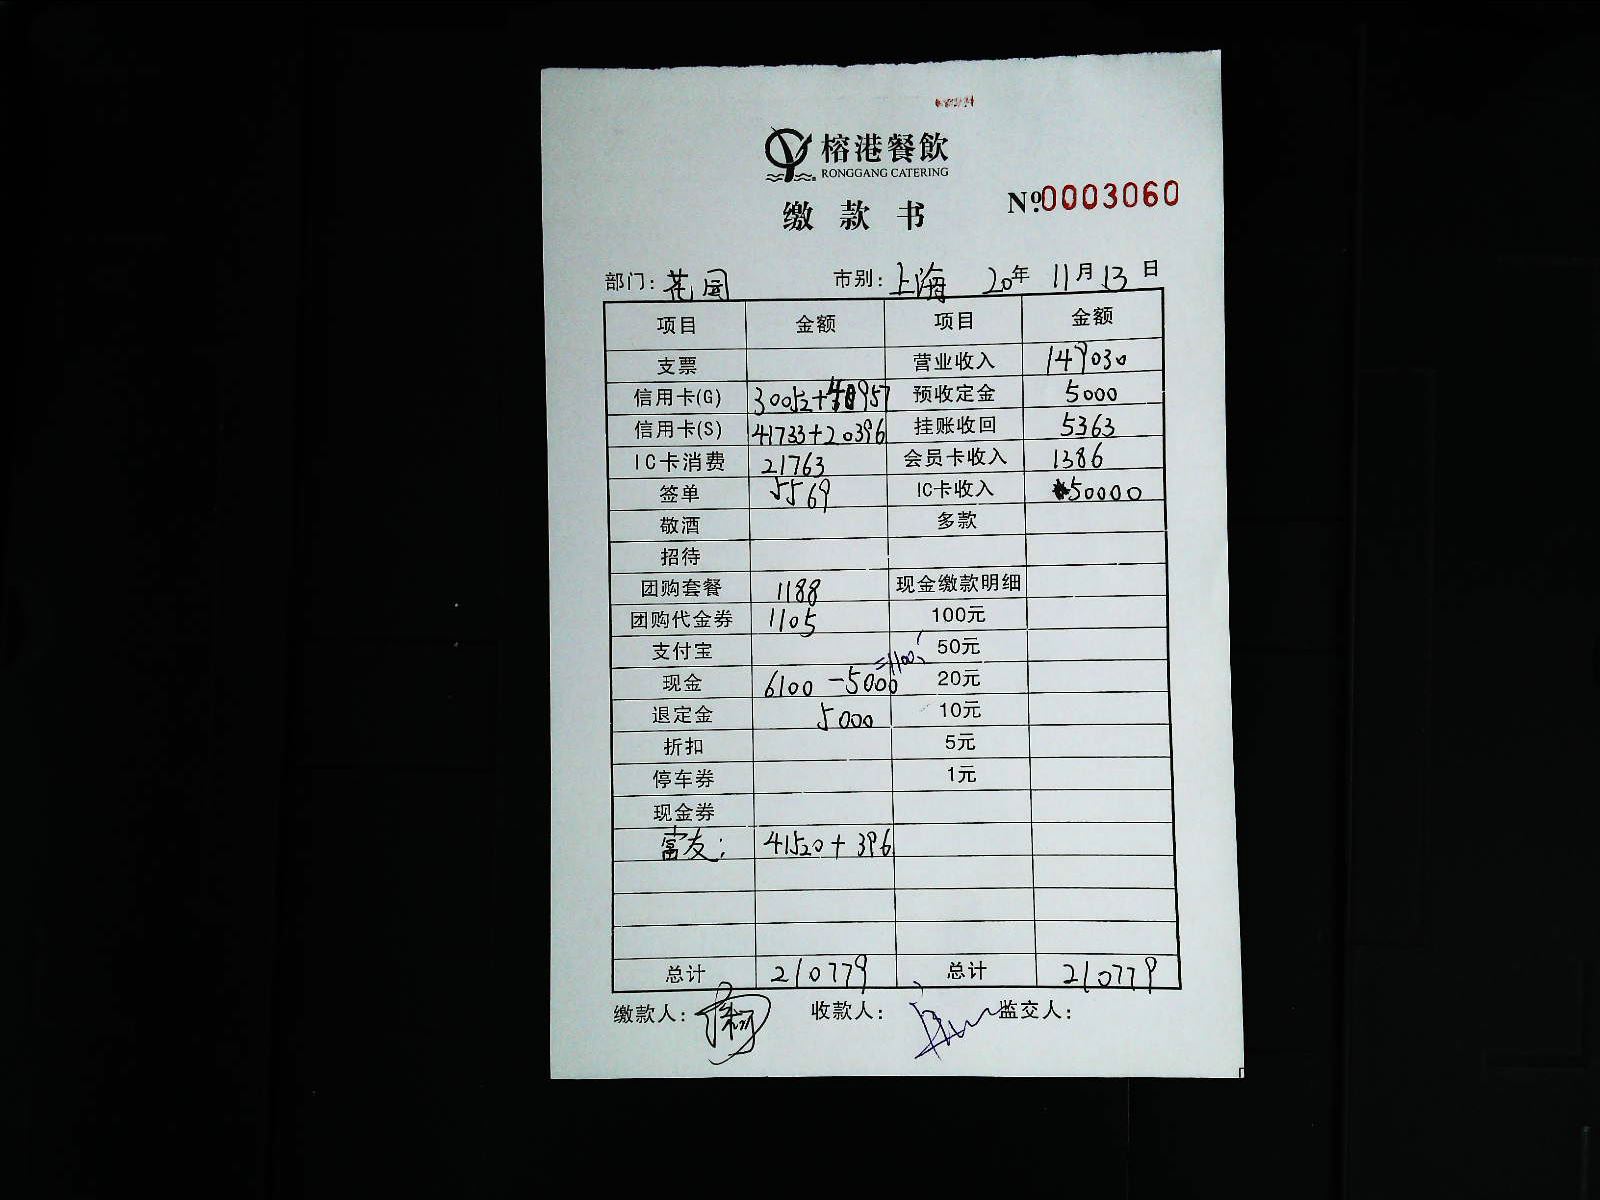 榕港餐飲
RONGGANG CATERING
缴款书
№0003060
部门：花园 市别：上海 20年 11月 13日
项目 金额 项目 金额
支票 营业收入 149030
信用卡(G) 30052+40957 预收定金 5000
信用卡(S) 41733+20396 挂账收回 5363
IC卡消费 21763 会员卡收入 1386
签单 5569 IC卡收入 50000
敬酒 多款
招待
团购套餐 1188 现金缴款明细
团购代金券 1105 100元
支付宝 50元
现金 6100-5000=1100 20元
退定金 5000 10元
折扣 5元
停车券 1元
现金券
富友： 41520+396
总计 210779 总计 210779
缴款人： 收款人： 监交人：